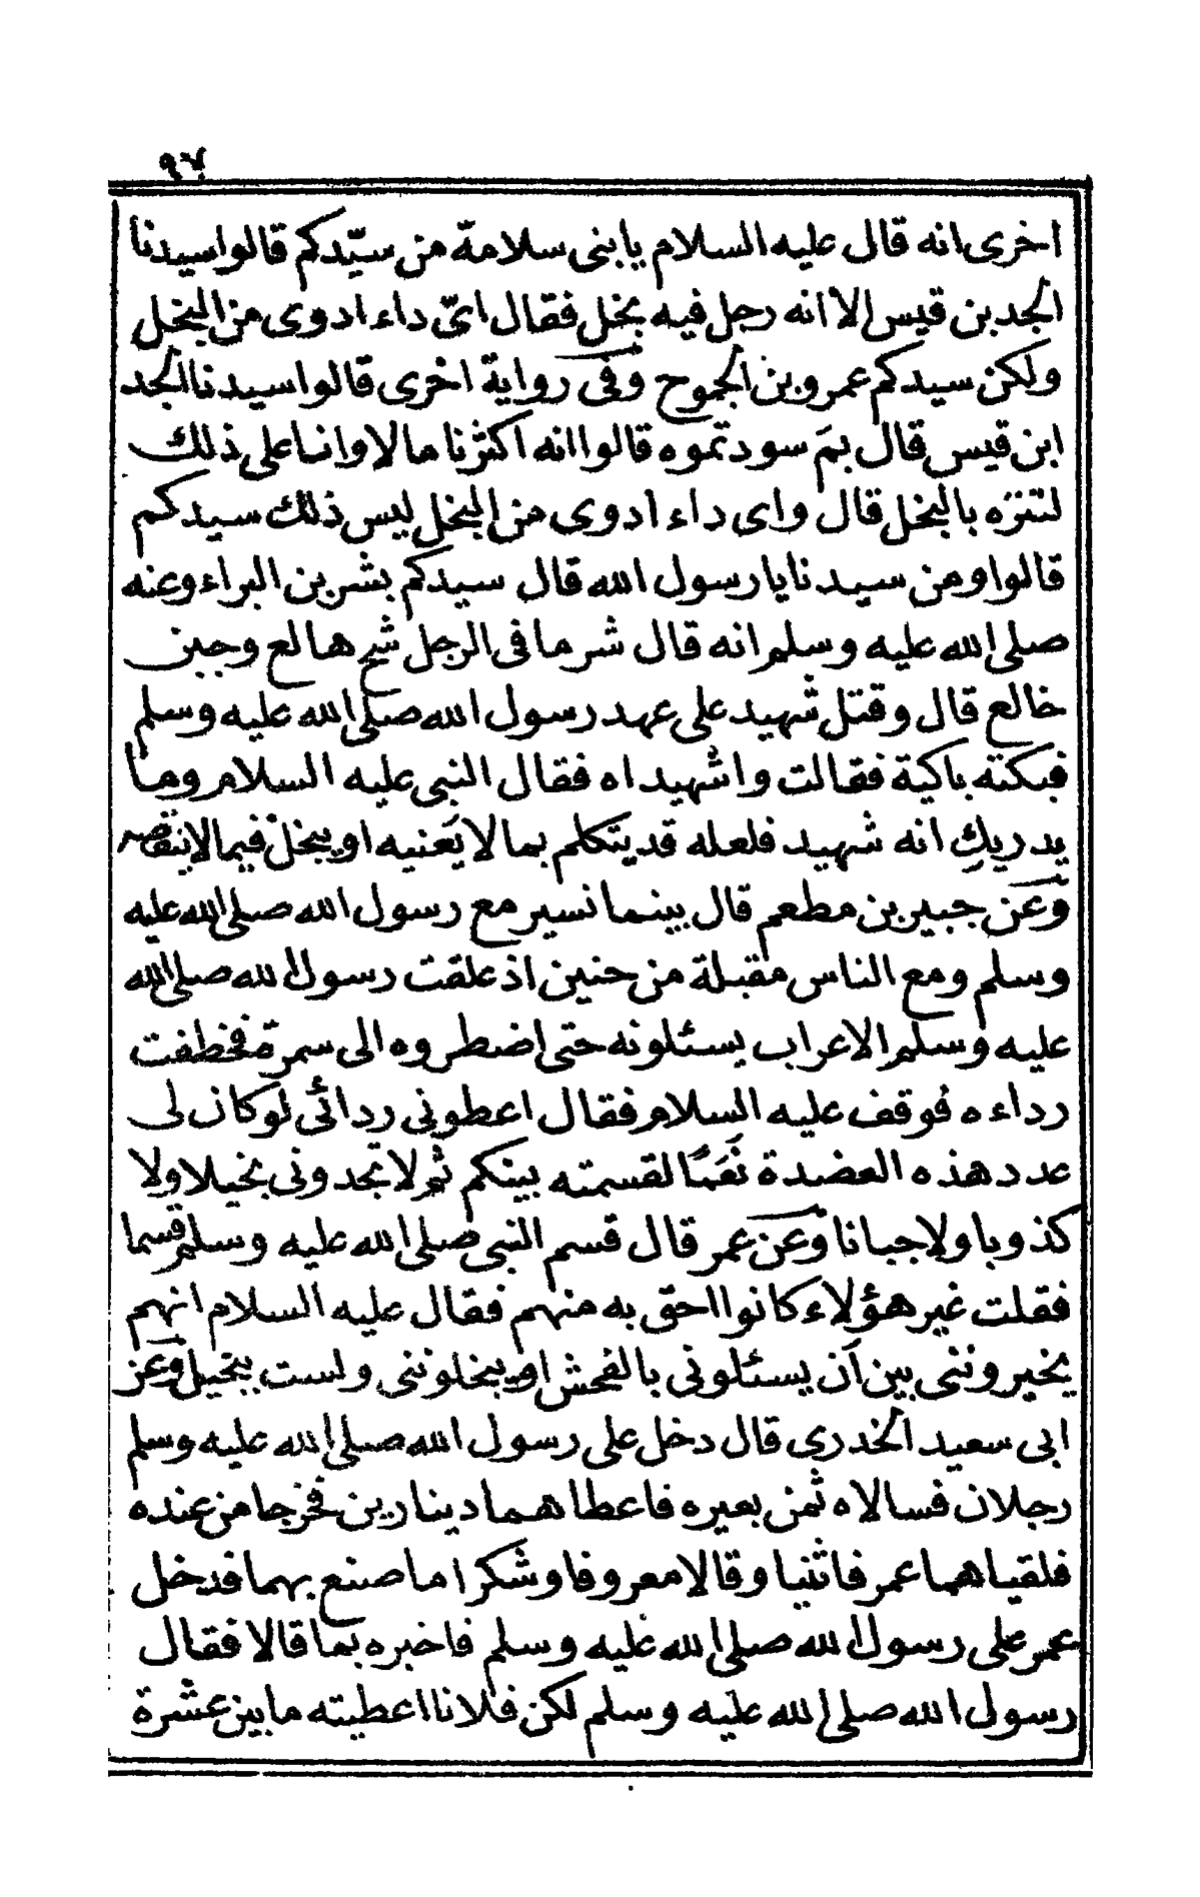 ٩٧
اخرى انه قال عليه السلام يا بنى سلامة من سيّدكم قالوا سيدنا
الجد بن قيس الا انه رجل فيه بخل فقال اىّ داء ادوى من البخل
ولكن سيدكم عمرو بن الجموح وفى رواية اخرى قالوا سيدنا الجد
ابن قيس قال بمَ سودتموه قالوا انه اكثرنا مالا وانا على ذلك
لنتنزه بالبخل قال واى داء ادوى من البخل ليس ذلك سيدكم
قالوا ومن سيدنا يا رسول الله قال سيدكم بشر بن البراء وعنه
صلى الله عليه وسلم انه قال شر ما فى الرجل شح هالع وجبن
خالع قال وقتل شهيد على عهد رسول الله صلى الله عليه وسلم
فبكته باكية فقالت واشهيداه فقال النبى عليه السلام وما
يدريكِ انه شهيد فلعله قد يتكلم بما لا يَعنيه او يبخل فيما لا ينقصه
وعن جبير بن مطعم قال بينما نسير مع رسول الله صلى الله عليه
وسلم ومع الناس مقبلة من حنين اذ علقت رسول الله صلى الله
عليه وسلم الاعراب يسئلونه حتى اضطروه الى سمرة فخطفت
رداءه فوقف عليه السلام فقال اعطونى ردائى لو كان لى
عدد هذه العضدة نَعَمًا لقسمته بينكم ثم لا تجدونى بخيلا ولا
كذوبا ولا جبانا وعن عمر قال قسم النبى صلى الله عليه وسلم قسما
فقلت غير هؤلاء كانوا احق به منهم فقال عليه السلام انهم
يخيروننى بين اَن يسئلونى بالفحش او يبخلوننى ولست ببخيل وعن
ابى سعيد الخدرى قال دخل على رسول الله صلى الله عليه وسلم
رجلان فسالاه ثمن بعيره فاعطاهما دينارين فخرجا من عنده
فلقياهما عمر فاثنيا وقالا معروفا وشكرا ما صنع بهما فدخل
عمر على رسول الله صلى الله عليه وسلم فاخبره بما قالا فقال
رسول الله صلى الله عليه وسلم لكن فلانا اعطيته ما بين عشرة